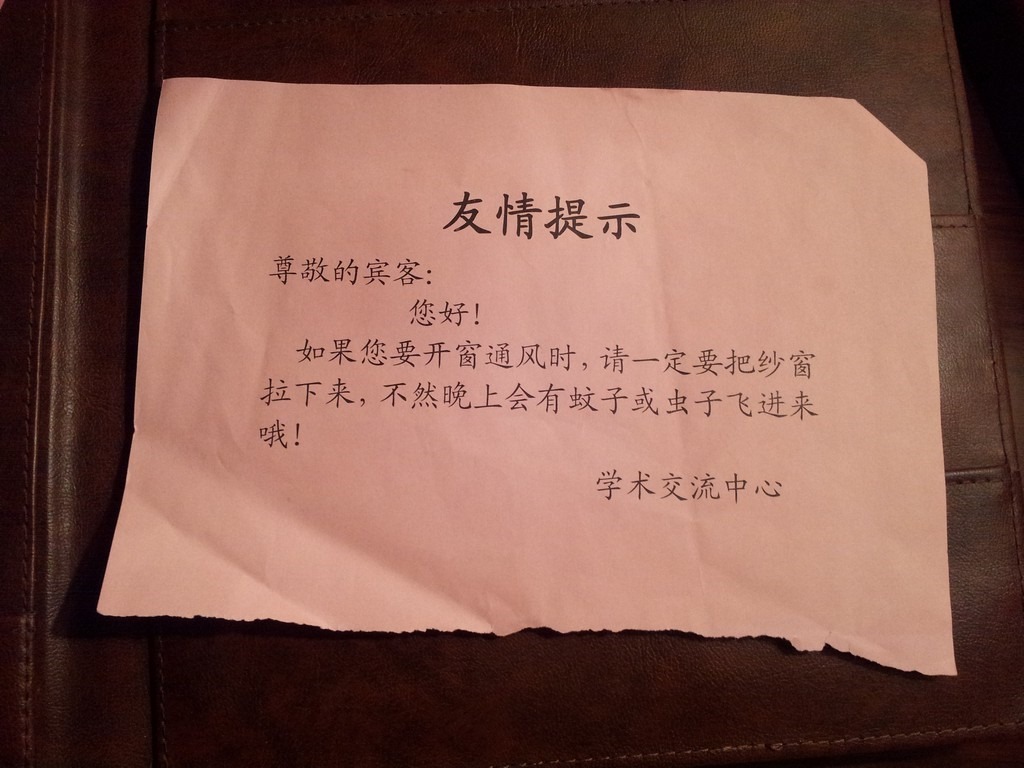 友情提示
尊敬的宾客:
您好!
如果您要开窗通风时,请一定要把纱窗
拉下来,不然晚上会有蚊子或虫子飞进来
哦!
学术交流中心